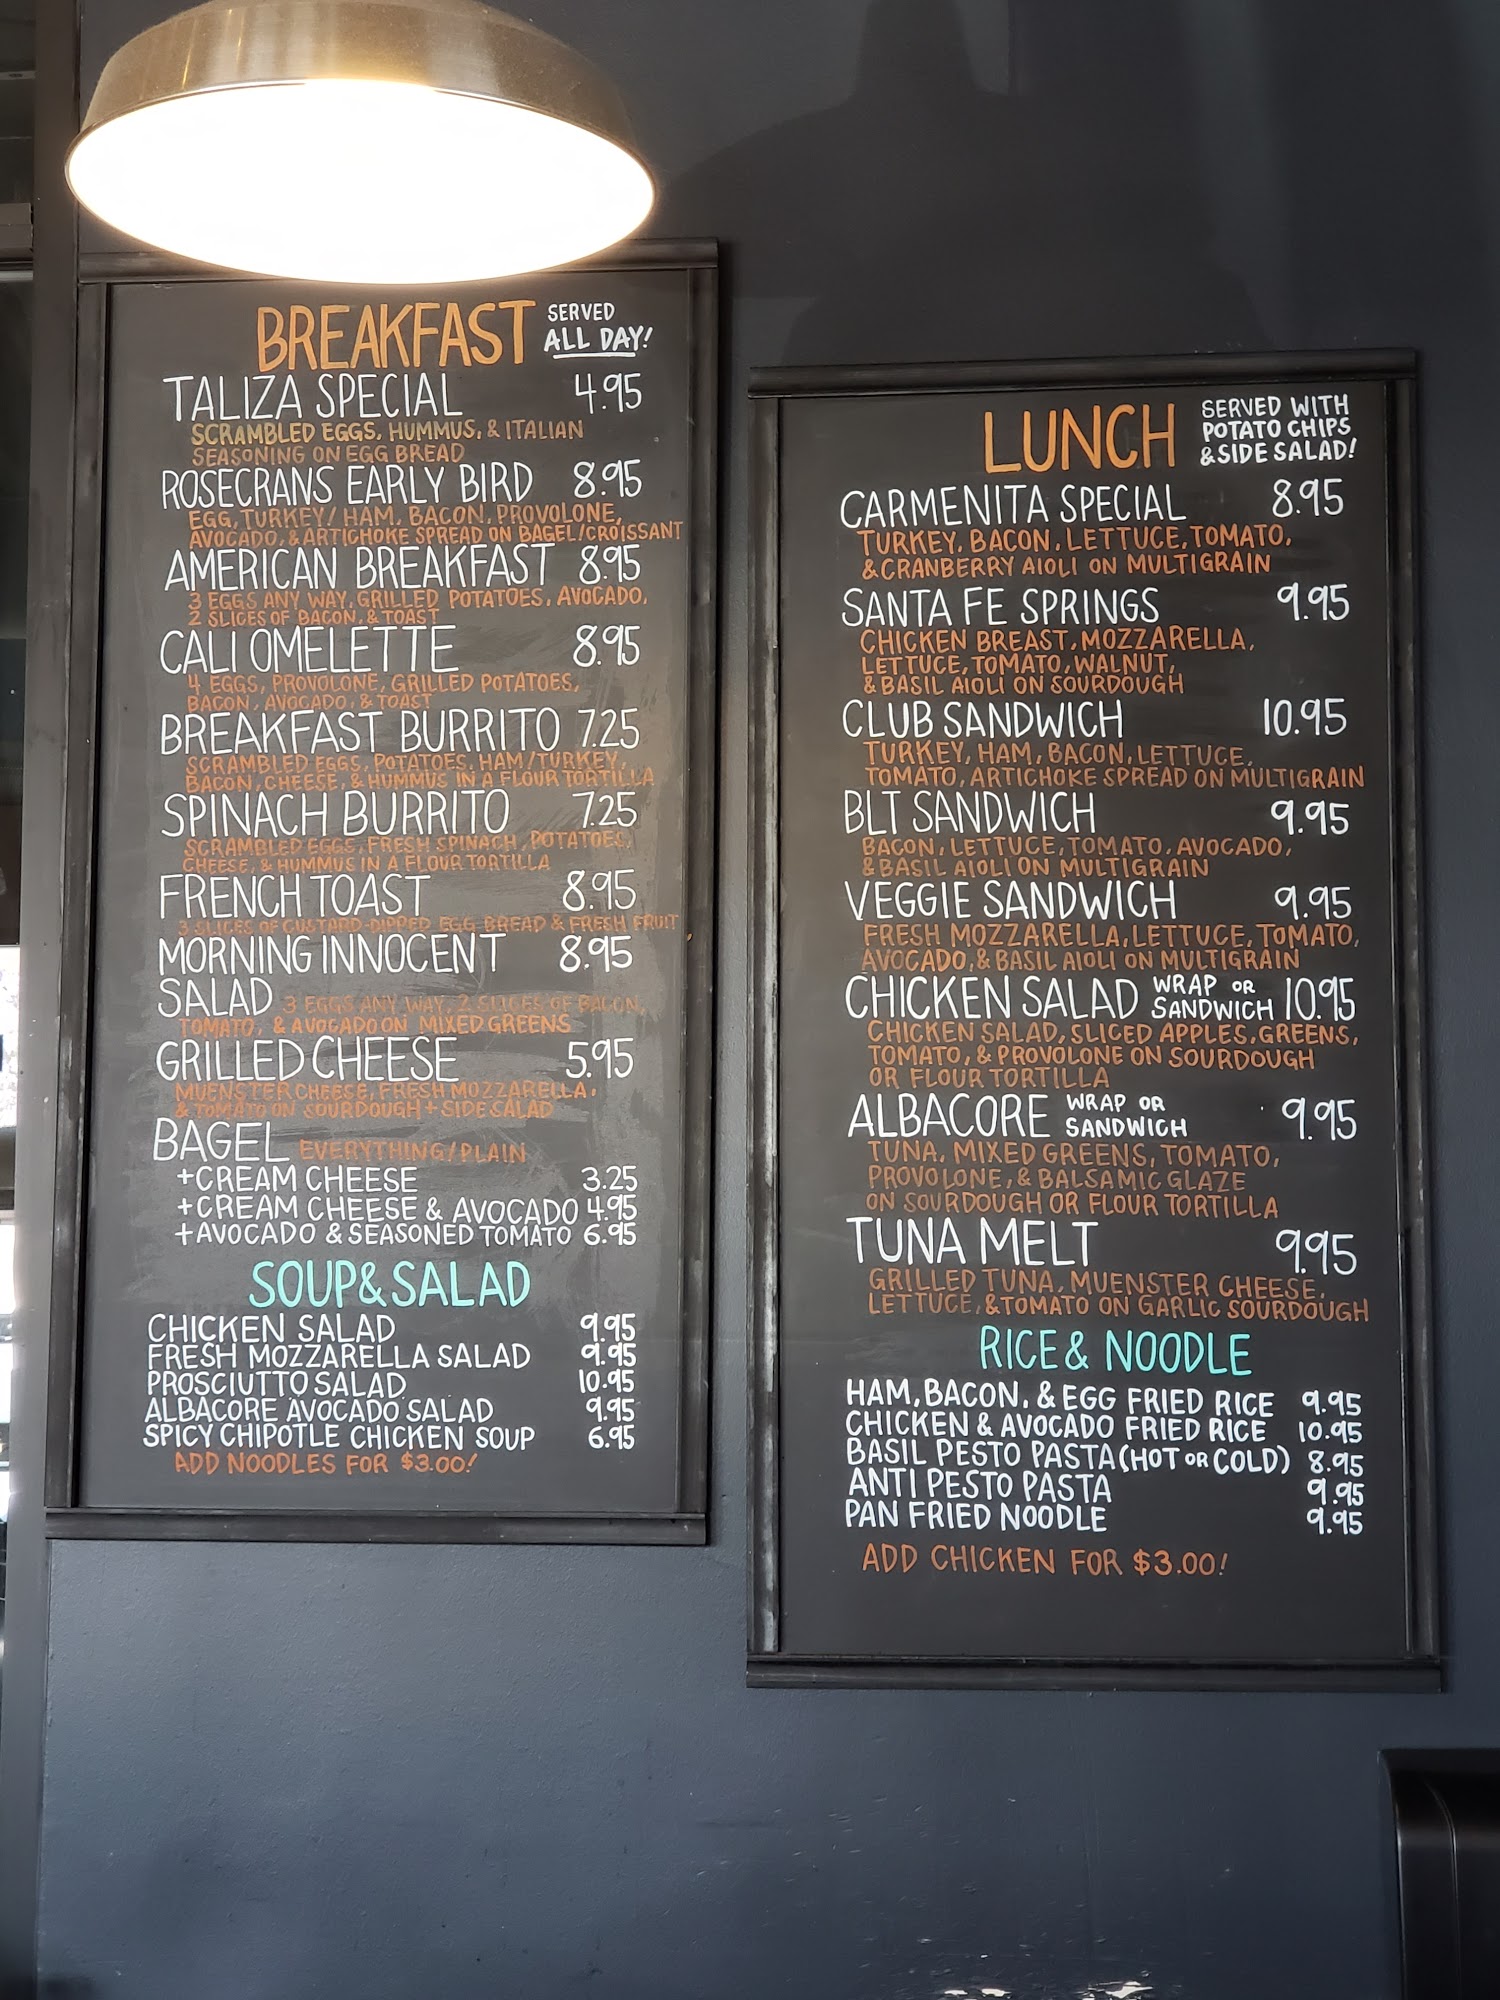 BREAKFAST SERVED ALL DAY!
TALIZA SPECIAL 4.95
SCRAMBLED EGGS, HUMMUS, & ITALIAN
SEASONING ON EGG BREAD
ROSECRANS EARLY BIRD 8.95
EGG, TURKEY/HAM, BACON, PROVOLONE,
AVOCADO, & ARTICHOKE SPREAD ON BAGEL/CROISSANT
AMERICAN BREAKFAST 8.95
3 EGGS ANY WAY, GRILLED POTATOES, AVOCADO,
2 SLICES OF BACON, & TOAST
CALI OMELETTE 8.95
4 EGGS, PROVOLONE, GRILLED POTATOES,
BACON, AVOCADO, & TOAST
BREAKFAST BURRITO 7.25
SCRAMBLED EGGS, POTATOES, HAM/TURKEY,
BACON, CHEESE, & HUMMUS IN A FLOUR TORTILLA
SPINACH BURRITO 7.25
SCRAMBLED EGGS, FRESH SPINACH, POTATOES,
CHEESE, & HUMMUS IN A FLOUR TORTILLA
FRENCH TOAST 8.95
3 SLICES OF CUSTARD-DIPPED EGG BREAD & FRESH FRUIT
MORNING INNOCENT 8.95
SALAD 3 EGGS ANY WAY, 2 SLICES OF BACON,
TOMATO, & AVOCADO ON MIXED GREENS
GRILLED CHEESE 5.95
MUENSTER CHEESE, FRESH MOZZARELLA,
& TOMATO ON SOURDOUGH + SIDE SALAD
BAGEL EVERYTHING/PLAIN
+CREAM CHEESE 3.25
+CREAM CHEESE & AVOCADO 4.95
+AVOCADO & SEASONED TOMATO 6.95
SOUP & SALAD
CHICKEN SALAD 9.95
FRESH MOZZARELLA SALAD 9.95
PROSCIUTTO SALAD 10.95
ALBACORE AVOCADO SALAD 9.95
SPICY CHIPOTLE CHICKEN SOUP 6.95
ADD NOODLES FOR $3.00!
LUNCH SERVED WITH
POTATO CHIPS
& SIDE SALAD!
CARMENITA SPECIAL 8.95
TURKEY, BACON, LETTUCE, TOMATO,
& CRANBERRY AIOLI ON MULTIGRAIN
SANTA FE SPRINGS 9.95
CHICKEN BREAST, MOZZARELLA,
LETTUCE, TOMATO, WALNUT,
& BASIL AIOLI ON SOURDOUGH
CLUB SANDWICH 10.95
TURKEY, HAM, BACON, LETTUCE,
TOMATO, ARTICHOKE SPREAD ON MULTIGRAIN
BLT SANDWICH 9.95
BACON, LETTUCE, TOMATO, AVOCADO,
& BASIL AIOLI ON MULTIGRAIN
VEGGIE SANDWICH 9.95
FRESH MOZZARELLA, LETTUCE, TOMATO,
AVOCADO, & BASIL AIOLI ON MULTIGRAIN
CHICKEN SALAD WRAP OR SANDWICH 10.95
CHICKEN SALAD, SLICED APPLES, GREENS,
TOMATO, & PROVOLONE ON SOURDOUGH
OR FLOUR TORTILLA
ALBACORE WRAP OR SANDWICH 9.95
TUNA, MIXED GREENS, TOMATO,
PROVOLONE, & BALSAMIC GLAZE
ON SOURDOUGH OR FLOUR TORTILLA
TUNA MELT 9.95
GRILLED TUNA, MUENSTER CHEESE,
LETTUCE, & TOMATO ON GARLIC SOURDOUGH
RICE & NOODLE
HAM, BACON, & EGG FRIED RICE 9.95
CHICKEN & AVOCADO FRIED RICE 10.95
BASIL PESTO PASTA (HOT OR COLD) 8.95
ANTI PESTO PASTA 9.95
PAN FRIED NOODLE 9.95
ADD CHICKEN FOR $3.00!